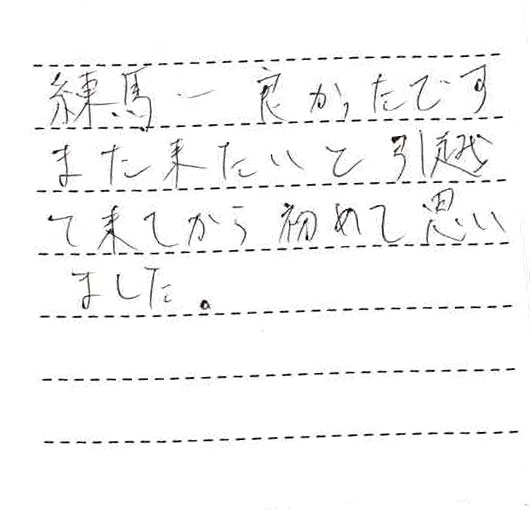 練馬一良かったです
また来たいと引越
て来てから初めて思い
ました。